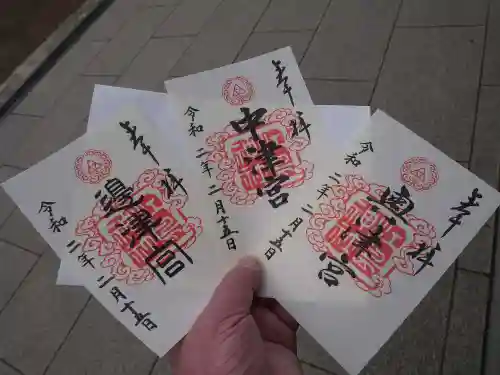 奉拝
邊津宮
令和二年二月十五日
奉拝
中津宮
令和二年二月十五日
奉拝
奥津宮
令和二年二月十五日